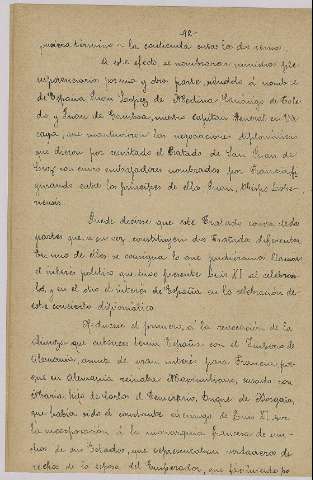 -12-
término a la contienda entre los dos reinos.
A este efecto, se nombraron ministros ple-
nipotenciarios por una y otra parte, siéndolo á nombre
de España Juan Lopez de Medina, Camargo de Tole-
do y Juan de Gamboa, nuestro capitan General en Viz-
caya, que mantuvieron las negociaciones diplomáticas
que dieron por resultado el Tratado de San Juan de
Luz, con embajadores nombrados por Francia, fi-
gurando entre los principales de ellos Juan, Obispo
Puede decirse que este Tratado consta de dos
partes que, a su vez, constituyen dos Tratados diferentes.
En uno de ellos se consigna lo que pudiéramos llamar
el interés político que tuvo presente Luis XI al celebrar-
lo, y en el otro el interés de España en la celebración de
este concierto diplomático.
Redúcese el primero, á la rescisión de la
alianza que entonces tenía España con el Imperio de
Alemania, asunto de gran interés para Francia por-
que en Alemania reinaba Maximiliano, casado con
María, hija de Carlos el Temerario, Duque de Borgoña,
que había sido el constante enemigo de Luis XI por
la incorporación á la monarquía francesa de mu-
chos de sus Estados, que representaban verdaderos de-
rechos de la esposa del Emperador, que